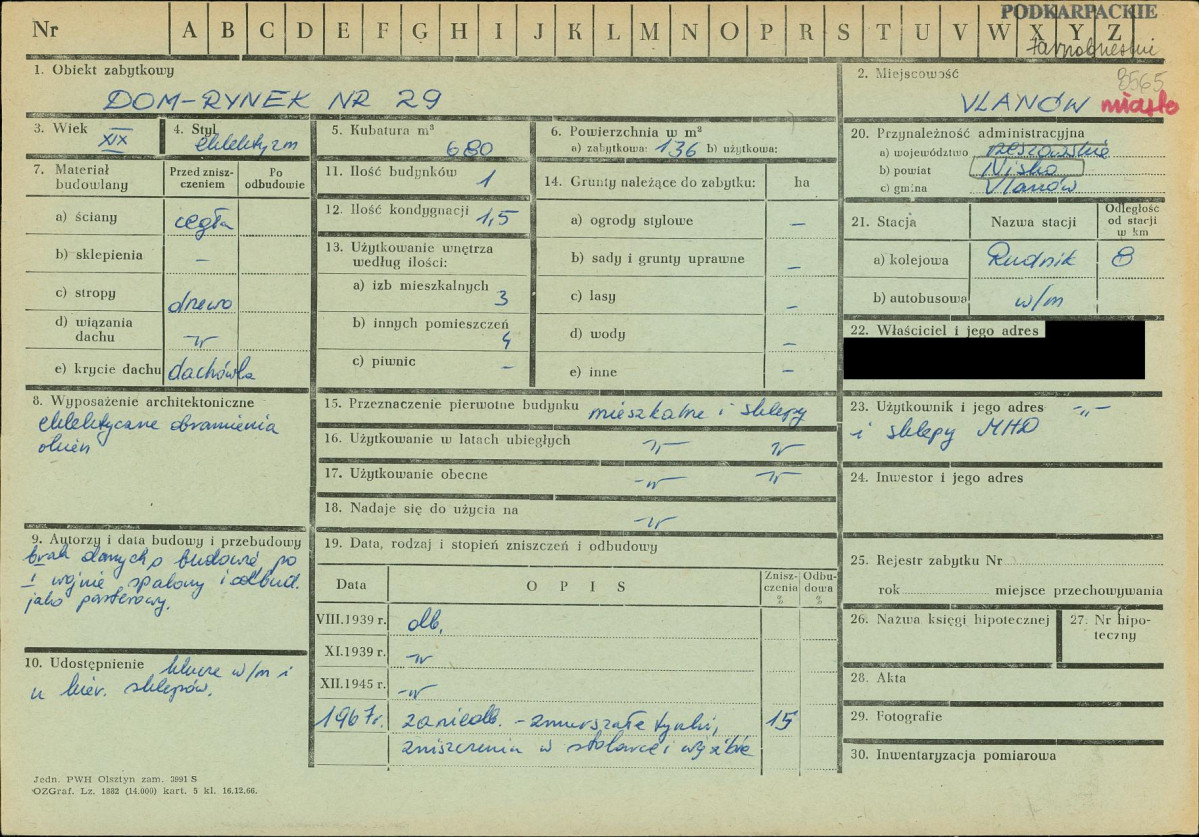 PODKARPACKIE
Nr A B C D E F G H I J K L M N O P R S T U V W X Y Z
tarnobrzeski
8565
1. Obiekt zabytkowy
DOM-RYNEK NR 29
2. Miejscowość
VLANÓW miasto
3. Wiek
XIX
4. Styl
eklektyzm
5. Kubatura m³
680
6. Powierzchnia w m²
a) zabytkowa: 136 b) użytkowa:
20. Przynależność administracyjna
a) województwo rzeszowskie
b) powiat Nisko
c) gmina Vlanów
7. Materiał budowlany
Przed zniszczeniem
Po odbudowie
a) ściany cegła
b) sklepienia –
c) stropy drewo
d) wiązania dachu -"-
e) krycie dachu dachówka
11. Ilość budynków 1
12. Ilość kondygnacji 1,5
13. Użytkowanie wnętrza według ilości:
a) izb mieszkalnych 3
b) innych pomieszczeń 4
c) piwnic –
14. Grunty należące do zabytku: ha
a) ogrody stylowe –
b) sady i grunty uprawne –
c) lasy –
d) wody –
e) inne –
21. Stacja
Nazwa stacji
Odległość od stacji w km
a) kolejowa Rudnik 8
b) autobusowa w/m
22. Właściciel i jego adres
8. Wyposażenie architektoniczne
eklektyczne obramienia
okien
15. Przeznaczenie pierwotne budynku mieszkalne i sklepy
16. Użytkowanie w latach ubiegłych -"- -"-
17. Użytkowanie obecne -"- -"-
18. Nadaje się do użycia na -"-
23. Użytkownik i jego adres -"-
i sklepy MHD
24. Inwestor i jego adres
9. Autorzy i data budowy i przebudowy
brak danych o budowie, po
I wojnie spalony i odbud.
jako parterowy.
19. Data, rodzaj i stopień zniszczeń i odbudowy
Data
OPIS
Zniszczenia %
Odbudowa %
VIII.1939 r. db.
XI.1939 r. -"-
XII.1945 r. -"-
1967r. zaniedb. - zmurszałe tynki, 15
zniszczenia w stolarce i wyzibie
25. Rejestr zabytku Nr
rok miejsce przechowywania
26. Nazwa księgi hipotecznej
27. Nr hipoteczny
10. Udostępnienie klucze w/m i
u kier. sklepów.
28. Akta
29. Fotografie
30. Inwentaryzacja pomiarowa
Jedn. PWH Olsztyn zam. 3991 S
OZGraf. Lz. 1882 (14.000) kart. 5 kl. 16.12.66.